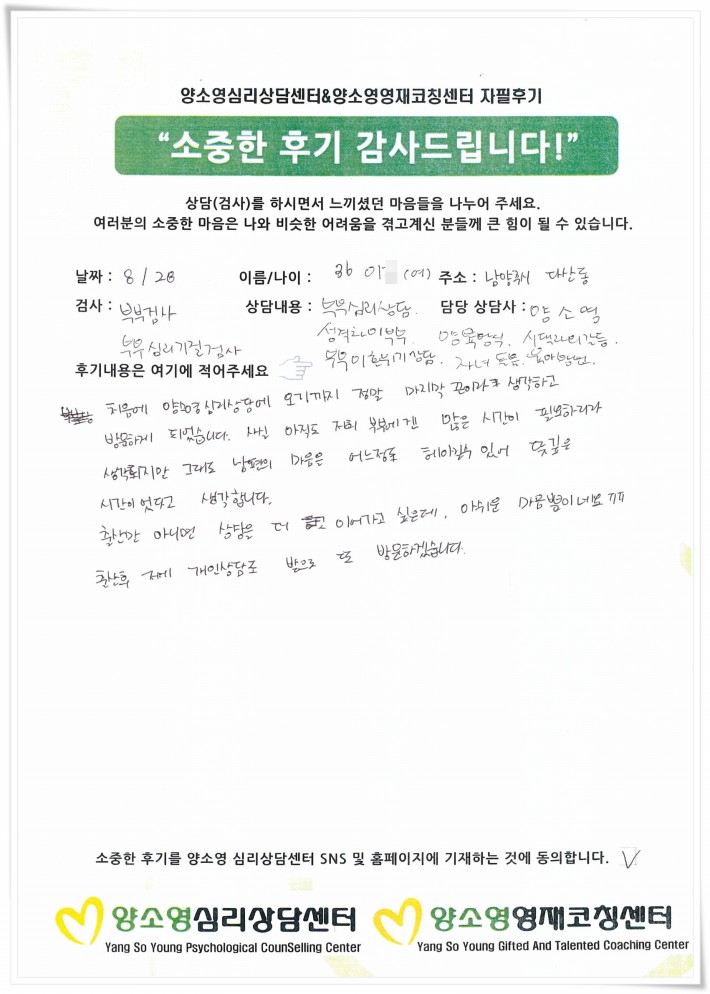 양소영심리상담센터&양소영영재코칭센터 자필후기
“소중한 후기 감사드립니다!”
상담(검사)를 하시면서 느끼셨던 마음들을 나누어 주세요.
여러분의 소중한 마음은 나와 비슷한 어려움을 겪고계신 분들께 큰 힘이 될 수 있습니다.
날짜 : 8 / 28 이름/나이 : 36 이 (여) 주소 : 남양주시 다산동
검사 : 부부검사 상담내용 : 부부심리상담. 담당 상담사 : 양소영
성격차이 양육방식. 시댁과의갈등.
부부심리기질검사 부부이혼위기상담.
후기내용은 여기에 적어주세요
처음에 양소영심리상담에 오기까지 정말 마지막 끈이라고 생각하고
방문하게 되었습니다. 사실 아직도 저희 부부에겐 많은 시간이 필요하리라
생각되지만 그래도 남편의 마음은 어느정도 헤아릴수 있어 뜻깊은
시간이었다고 생각합니다.
출산만 아니면 상담을 더 이어가고 싶은데, 아쉬운 마음뿐이네요 ㅠㅠ
출산후 저에 개인상담도 받으러 또 방문하겠습니다.
소중한 후기를 양소영 심리상담센터 SNS 및 홈페이지에 기재하는 것에 동의합니다. V
양소영심리상담센터 양소영영재코칭센터
Yang So Young Psychological CounSelling Center Yang So Young Gifted And Talented Coaching Center